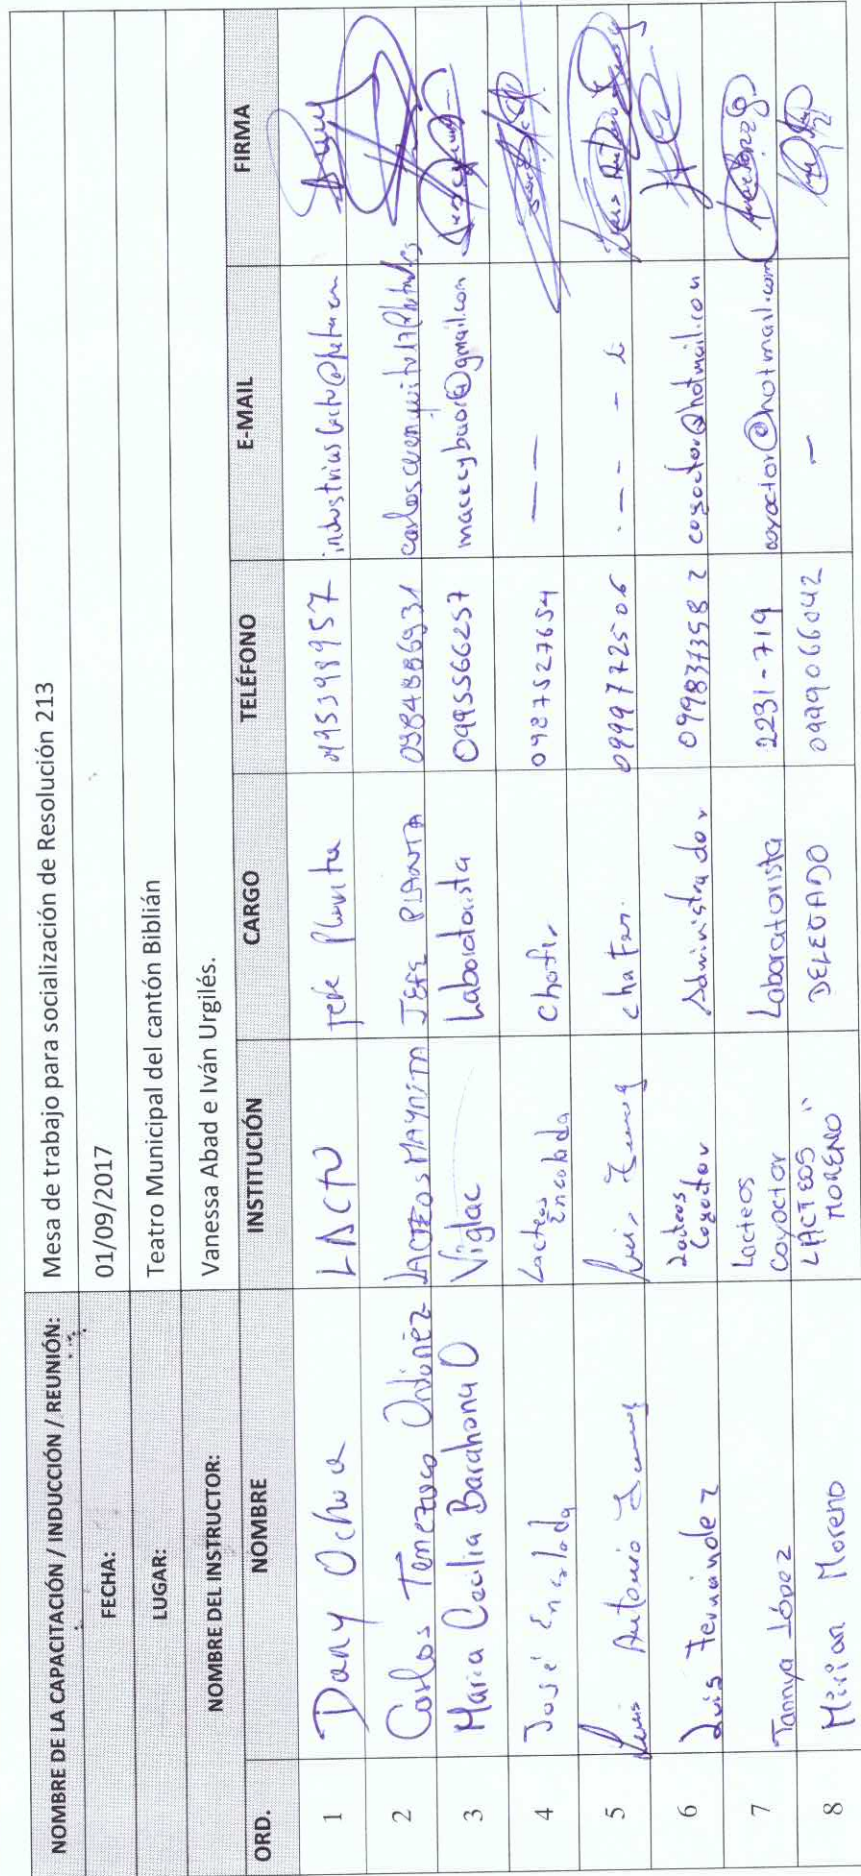 NOMBRE DE LA CAPACITACIÓN / INDUCCIÓN / REUNIÓN: Mesa de trabajo para socialización de Resolución 213
FECHA: 01/09/2017
LUGAR: Teatro Municipal del cantón Biblián
NOMBRE DEL INSTRUCTOR: Vanessa Abad e Iván Urgilés.
ORD. NOMBRE INSTITUCIÓN CARGO TELÉFONO E-MAIL FIRMA
1 Dany Ochoa LACTO jefe Planta
2 Carlos Tenezaca Ordoñez LACTEOS MAYNITA JEFE PLANTA 0984886931
3 Maria Cecilia Barahona O Viglac Laboratorista 0995566257 @gmail.com
4 José Encalada Lacteos Encalada Chofer 0987527654 — —
5 Luis Antonio Luis chofer. 0999772506
6 Luis Fernández Lacteos Coyoctor Administrador 0998373582 coyoctor@hotmail.com
7 Tannya López Lacteos Coyoctor Laboratorista 2231-719 coyoctor@hotmail.com
8 Mirian Moreno LÁCTEOS MORENO" DELEGADO 0999066042 —